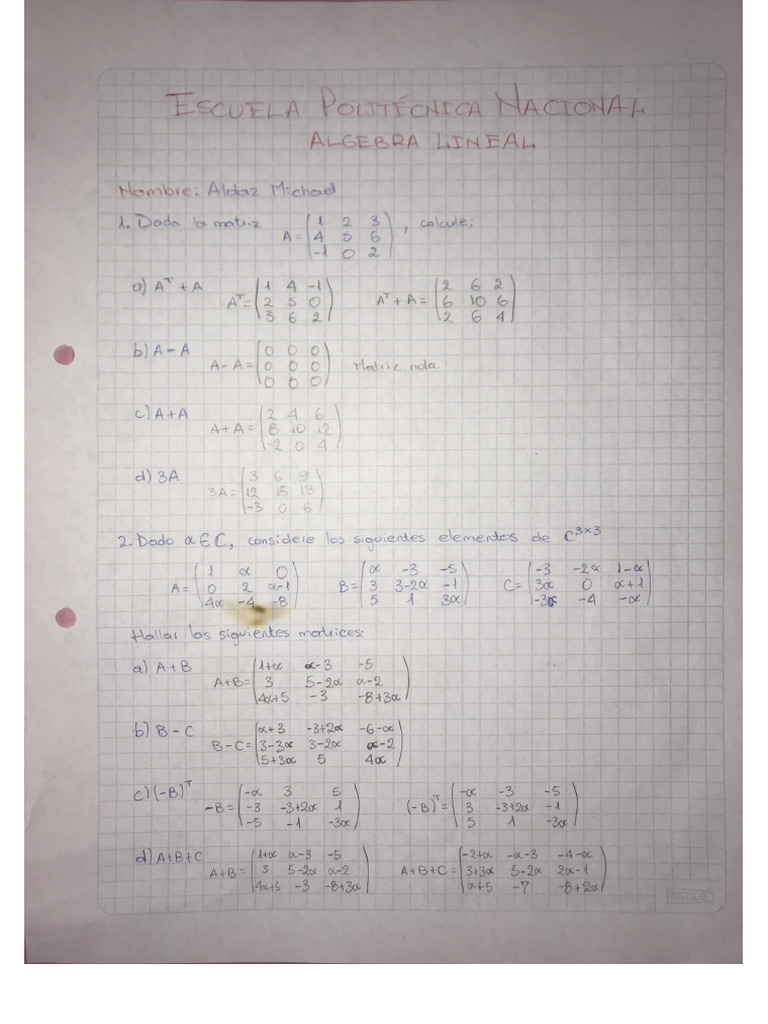 ESCUELA POLITÉCNICA NACIONAL
ALGEBRA LINEAL
Nombre: Aldaz Michael
1. Dada la matriz A = (1 2 3 / 4 5 6 / -1 0 2), calcule:
a) Aᵀ + A Aᵀ = (1 4 -1 / 2 5 0 / 3 6 2) Aᵀ + A = (2 6 2 / 6 10 6 / 2 6 4)
b) A - A A - A = (0 0 0 / 0 0 0 / 0 0 0) Matriz nula.
c) A + A A + A = (2 4 6 / 8 10 12 / -2 0 4)
d) 3A 3A = (3 6 9 / 12 15 18 / -3 0 6)
2. Dado α ∈ C, considere los siguientes elementos de C³ˣ³
A = (1 α 0 / 0 2 α-1 / 4α -4 -8) B = (α -3 -5 / 3 3-2α -1 / 5 1 3α) C = (-3 -2α 1-α / 3α 0 α+1 / -3α -4 -α)
Hallar las siguientes matrices:
a) A + B A+B = (1+α α-3 -5 / 3 5-2α α-2 / 4α+5 -3 -8+3α)
b) B - C B - C = (α+3 -3+2α -6-α / 3-3α 3-2α α-2 / 5+3α 5 4α)
c) (-B)ᵀ -B = (-α 3 5 / -3 -3+2α 1 / -5 -1 -3α) (-B)ᵀ = (-α -3 -5 / 3 -3+2α -1 / 5 1 -3α)
d) A+B+C A+B = (1+α α-3 -5 / 3 5-2α α-2 / 4α+5 -3 -8+3α) A+B+C = (-2+α -α-3 -4-α / 3+3α 5-2α 2α-1 / α+5 -7 -8+2α)